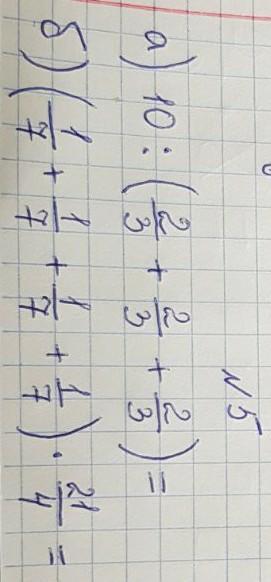 №5
а) 10 : (2/3 + 2/3 + 2/3) =
б) (1/7 + 1/7 + 1/7 + 1/7) · 21/4 =